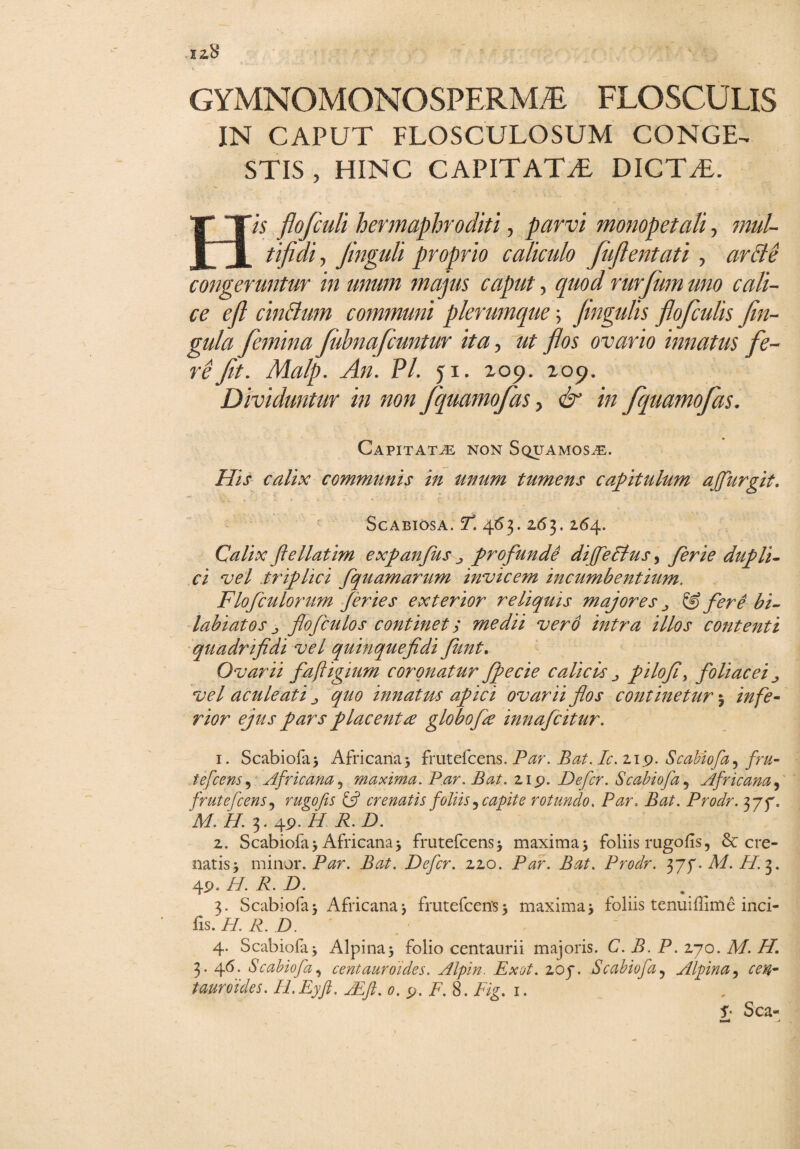 128
GYMNOMONOSPERMÆ FLOSCULIS
IN CAPUT FLOSCULOSUM CONGE-
STIS, HINC CAPITATÆ DICTÆ.
HIs floſculi hermaphroditi, parvi monopetali, mul-
tifidi, ſinguli proprio caliculo ſuſtentati, arctè
congeruntur in unum majus caput, quod rurſum uno cali-
ce eſt cinctum communi plerumque; ſingulis floſculis ſin-
gula ſemina ſubnaſcuntur ita, ut flos ovario innatus fe-
rè ſit. Malp. An. Pl. 51. 209. 209.
Dividuntur in non ſquamoſas, & in ſquamoſas.
CAPITATÆ NON SQUAMOSÆ.
His calix communis in unum tumens capitulum aſſurgit.
SCABIOSA. T. 463. 263. 264.
Calix ſtellatim expanſus, profundè diſſectus, ſerie dupli-
ci vel triplici ſquamarum invicem incumbentium.
Floſculorum ſeries exterior reliquis majores, & ferè bi-
labiatos, floſculos continet; medii verò intra illos contenti
quadrifidi vel quinquefidi ſunt.
Ovarii faſtigium coronatur ſpecie calicis, piloſi, foliacei,
vel aculeati, quo innatus apici ovarii flos continetur; infe-
rior ejus pars placentæ globoſæ innaſcitur.
1. Scabioſa; Africana; fruteſcens. Par. Bat. Ic. 219. Scabioſa, fru-
teſcens, Africana, maxima. Par. Bat. 219. Deſcr. Scabioſa, Africana,
fruteſcens, rugoſis & crenatis foliis, capite rotundo. Par. Bat. Prodr. 375.
M. H. 3. 49. H. R. D.
2. Scabioſa; Africana; fruteſcens; maxima; foliis rugoſis, & cre-
natis; minor. Par. Bat. Deſcr. 220. Par. Bat. Prodr. 375. M. H. 3.
49. H. R. D.
3. Scabioſa; Africana; fruteſcens; maxima; foliis tenuiſſimè inci-
ſis. H. R. D.
4. Scabioſa; Alpina; folio centaurii majoris. C. B. P. 270. M. H.
3. 46. Scabioſa, centauroïdes. Alpin. Exot. 205. Scabioſa, Alpina, cen-
tauroides. H. Eyſt. Æſt. o. 9. F. 8. Fig. 1.
5. Sca-